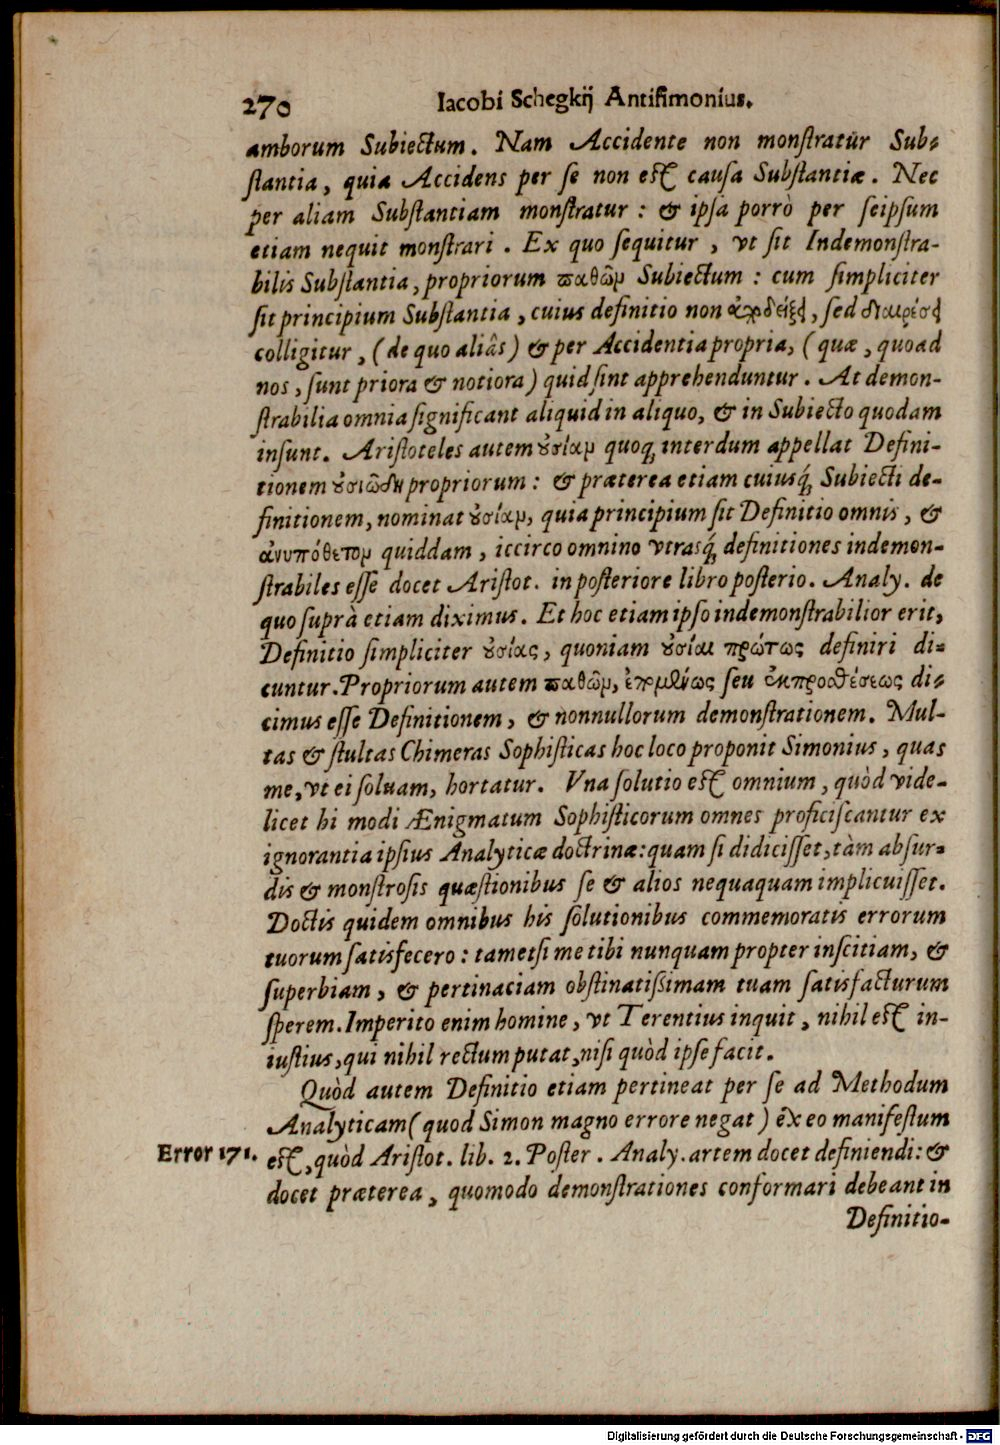 270 Iacobi Schegkij Antisimonius.
amborum Subiectum. Nam Accidente non monstratur Sub-
stantia, quia Accidens per se non est causa Substantiæ. Nec
per aliam Substantiam monstratur: & ipsa porrò per seipsum
etiam nequit monstrari. Ex quo sequitur, vt sit Indemonstra-
bilis Substantia, propriorum παθῶμ Subiectum: cum simpliciter
sit principium Substantia, cuius definitio non sed
colligitur, (de quo aliâs) & per Accidentia propria, (quæ, quoad
nos, sunt priora & notiora) quid sint apprehenduntur. At demon-
strabilia omnia significant aliquid in aliquo, & in Subiecto quodam
insunt. Aristoteles autem ȣσίαμ quoq; interdum appellat Defini-
tionem propriorum: & præterea etiam cuiusq́; Subiecti de-
finitionem, nominat ȣσίαμ, quia principium sit Definitio omnis, &
ἀνυπόθετομ quiddam, iccirco omnino vtrasq́; definitiones indemon-
strabiles esse docet Aristot. in posteriore libro posterio. Analy. de
quo suprà etiam diximus. Et hoc etiam ipso indemonstrabilior erit,
Definitio simpliciter ȣσίας, quoniam ȣσίαι πρώτως definiri di-
cuntur. Propriorum autem παθῶμ, ἑπομένως seu ἐκπροσθέσεως di-
cimus esse Definitionem, & nonnullorum demonstrationem. Mul-
tas & stultas Chimeras Sophisticas hoc loco proponit Simonius, quas
me, vt ei soluam, hortatur. Vna solutio est omnium, quòd vide-
licet hi modi Ænigmatum Sophisticorum omnes proficiscantur ex
ignorantia ipsius Analyticæ doctrinæ: quam si didicisset, tàm absur-
dis & monstrosis quæstionibus se & alios nequaquam implicuisset.
Doctis quidem omnibus his solutionibus commemoratis errorum
tuorum satisfecero: tametsi me tibi nunquam propter inscitiam, &
superbiam, & pertinaciam obstinatißimam tuam satisfacturum
sperem. Imperito enim homine, vt Terentius inquit, nihil est in-
iustius, qui nihil rectum putat, nisi quòd ipse facit.
Quòd autem Definitio etiam pertineat per se ad Methodum
Analyticam (quod Simon magno errore negat) ex eo manifestum
Error 171. est, quòd Aristot. lib. 2. Poster. Analy. artem docet definiendi: &
docet præterea, quomodo demonstrationes conformari debeant in
Definitio-
Digitalisierung gefördert durch die Deutsche Forschungsgemeinschaft - DFG